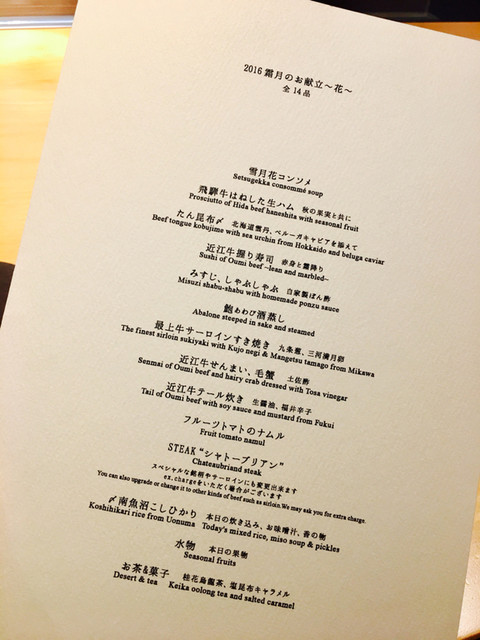 2016 霜月のお献立〜花〜
全14品
雪月花コンソメ
Setsugekka consommé soup
飛騨牛はねした生ハム 秋の果実と共に
Prosciutto of Hida beef haneshita with seasonal fruit
たん昆布〆 北海道雲丹、ベルーガキャビアを添えて
Beef tongue kobujime with sea urchin from Hokkaido and beluga caviar
近江牛握り寿司 赤身と霜降り
Sushi of Oumi beef ~lean and marbled~
みすじ、しゃぶしゃぶ 自家製ぽん酢
Misuzi shabu-shabu with homemade ponzu sauce
鮑あわび酒蒸し
Abalone steeped in sake and steamed
最上牛サーロインすき焼き 九条葱、三河満月卵
The finest sirloin sukiyaki with Kujo negi & Mangetsu tamago from Mikawa
近江牛せんまい、毛蟹 土佐酢
Senmai of Oumi beef and hairy crab dressed with Tosa vinegar
近江牛テール炊き 生醤油、福井辛子
Tail of Oumi beef with soy sauce and mustard from Fukui
フルーツトマトのナムル
Fruit tomato namul
STEAK "シャトーブリアン"
Chateaubriand steak
スペシャルな銘柄やサーロインにも変更出来ます
ex.chargeをいただく場合がございます
You can also upgrade or change it to other kinds of beef such as sirloin.We may ask you for extra charge.
〆南魚沼こしひかり 本日の炊き込み、お味噌汁、香の物
Koshihikari rice from Uonuma Today's mixed rice, miso soup & pickles
水物 本日の果物
Seasonal fruits
お茶&菓子 桂花烏龍茶、塩昆布キャラメル
Desert & tea Keika oolong tea and salted caramel